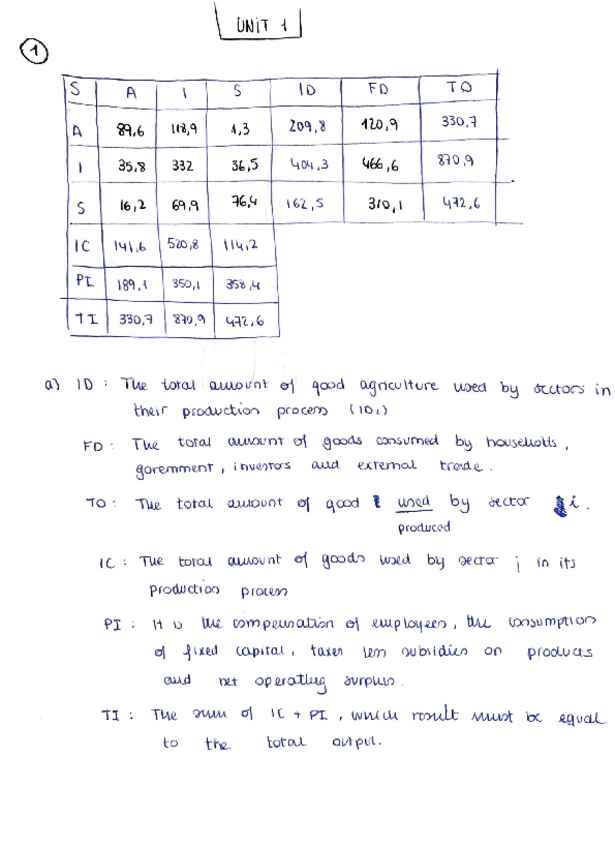 UNIT 1
1
S A I S ID FD TO
A 89,6 118,9 1,3 209,8 120,9 330,7
I 35,8 332 36,5 404,3 466,6 870,9
S 16,2 69,9 76,4 162,5 310,1 472,6
IC 141,6 520,8 114,2
PI 189,1 350,1 358,4
TI 330,7 870,9 472,6
a) ID : The total amount of good agriculture used by sectors in
their production process (ID1)
FD : The total amount of goods consumed by households,
government, investors and external trade.
TO : The total amount of good used by sector i.
produced
IC : The total amount of goods used by sector j in its
production process
PI : It is the compensation of employees, the consumption
of fixed capital, taxes less subsidies on products
and net operating surplus.
TI : The sum of IC + PI, which result must be equal
to the total output.